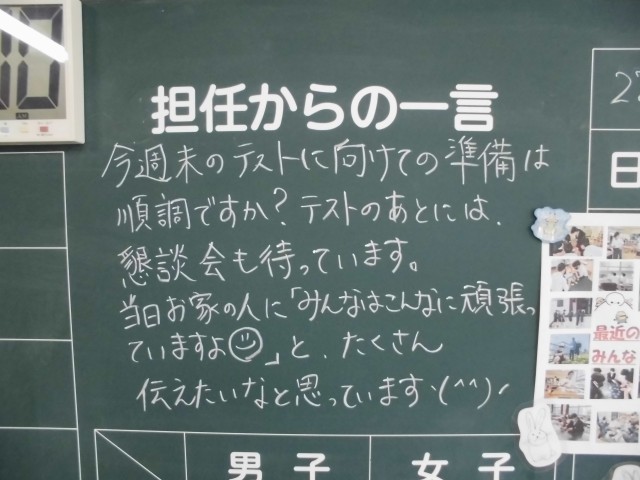 担任からの一言
今週末のテストに向けての準備は
順調ですか？テストのあとには、
懇談会も待っています。
当日お家の人に「みんなはこんなに頑張っ
ていますよ☺」と、たくさん
伝えたいなと思っています、(^^)ノ
日
最近の
みんな
男子
女子